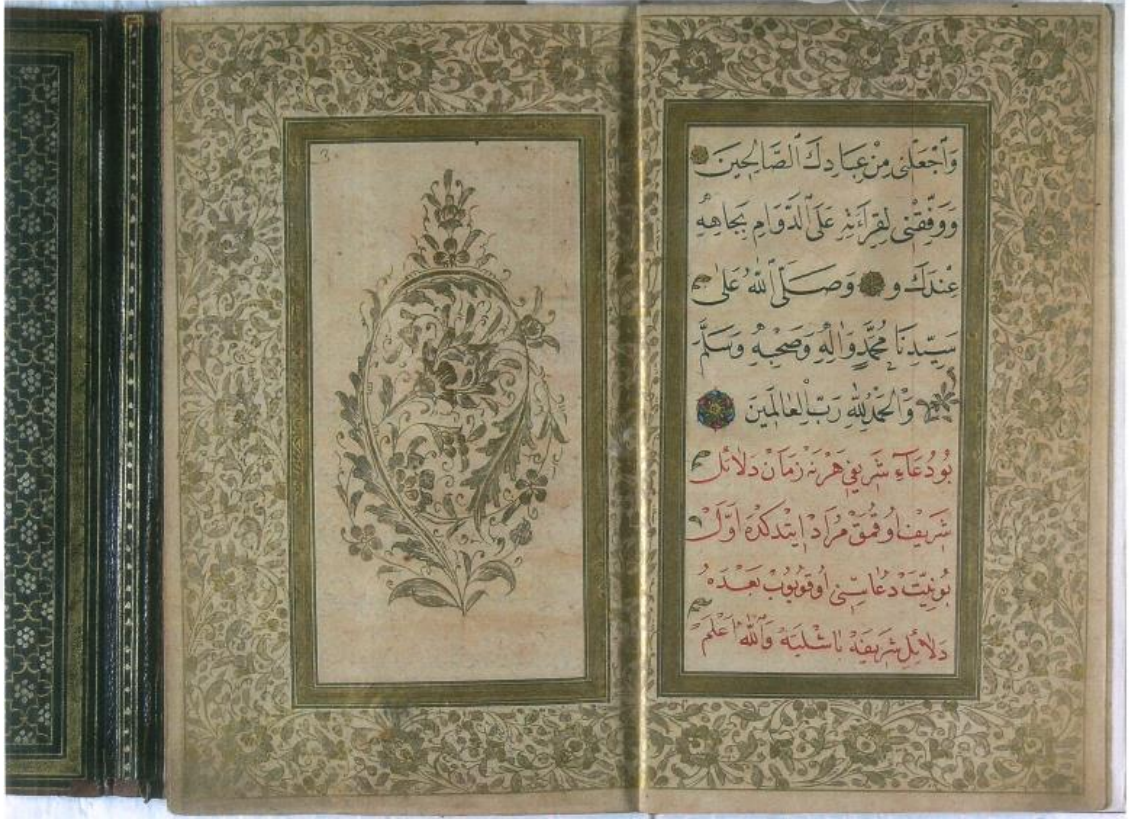 وَٱجْعَلْنِى مِنْ عِبَادِكَ ٱلصَّالِحِينَ
وَوَفِّقْنِى لِقِرَاءَتِهِ عَلَى ٱلدَّوَامِ بِجَاهِهِ
عِنْدَكَ وَ وَصَلَّى ٱللّٰهُ عَلٰى
سَيِّدِنَا مُحَمَّدٍ وَاٰلِهِ وَصَحْبِهِ وَسَلَّمَ
وَٱلْحَمْدُ لِلّٰهِ رَبِّ ٱلْعَالَمِينَ
بُو دُعَاءِ شَرِيفِى هَرْ نَه زَمَانْ دَلَائِلِ
شَرِيفِ اُوقُمَقْ مُرَادْ اِيتْدِكْدَه اَوَّلْ
بُو نِيَّتْ دُعَاسِنِى اُوقُويُوبْ بَعْدَهُ
دَلَائِلِ شَرِيفَه بَاشْلَيَه وَٱللّٰهُ اَعْلَمُ